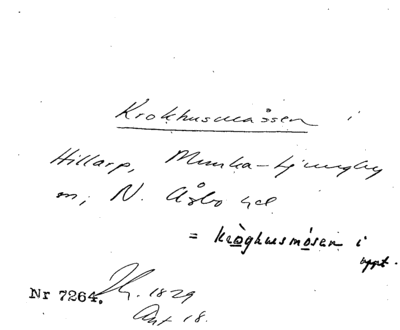 Krokhusmåssen i
Hillarp, Munka-Ljungby
sn, N. Åsbo hd
= kròghusmósen i
uppt.
Nr 7264. 1829
Akt 18.